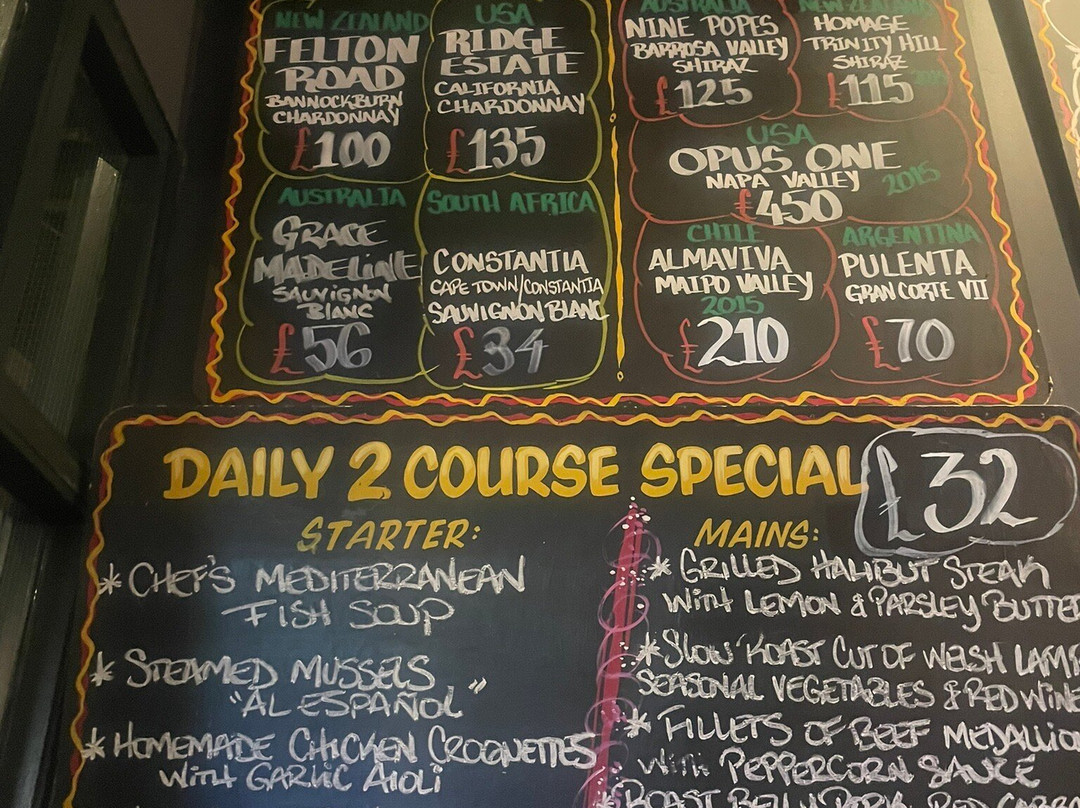 NEW ZEALAND
FELTON
ROAD
BANNOCKBURN
CHARDONNAY
£100
USA
RIDGE
ESTATE
CALIFORNIA
CHARDONNAY
£135
AUSTRALIA
GRACE
MADELINE
SAUVIGNON
BLANC
£56
SOUTH AFRICA
CONSTANTIA
CAPE TOWN/CONSTANTIA
SAUVIGNON BLANC
£34
AUSTRALIA
NINE POPES
BARROSA VALLEY
SHIRAZ
£125
NEW ZEALAND
HOMAGE
TRINITY HILL
SHIRAZ
£115
USA
OPUS ONE
NAPA VALLEY 2015
£450
CHILE
ALMAVIVA
MAIPO VALLEY
2015
£210
ARGENTINA
PULENTA
GRAN CORTE VII
£70
DAILY 2 COURSE SPECIAL £32
STARTER:
* CHEF'S MEDITERRANEAN
FISH SOUP
* STEAMED MUSSELS
"AL ESPAÑOL"
* HOMEMADE CHICKEN CROQUETTES
WITH GARLIC AIOLI
MAINS:
* GRILLED HALIBUT STEAK
WITH LEMON & PARSLEY BUTTER
* SLOW ROAST CUT OF WELSH LAMB
SEASONAL VEGETABLES & RED WINE
* FILLETS OF BEEF MEDALLION
WITH PEPPERCORN SAUCE
* ROAST BELLY PORK RED